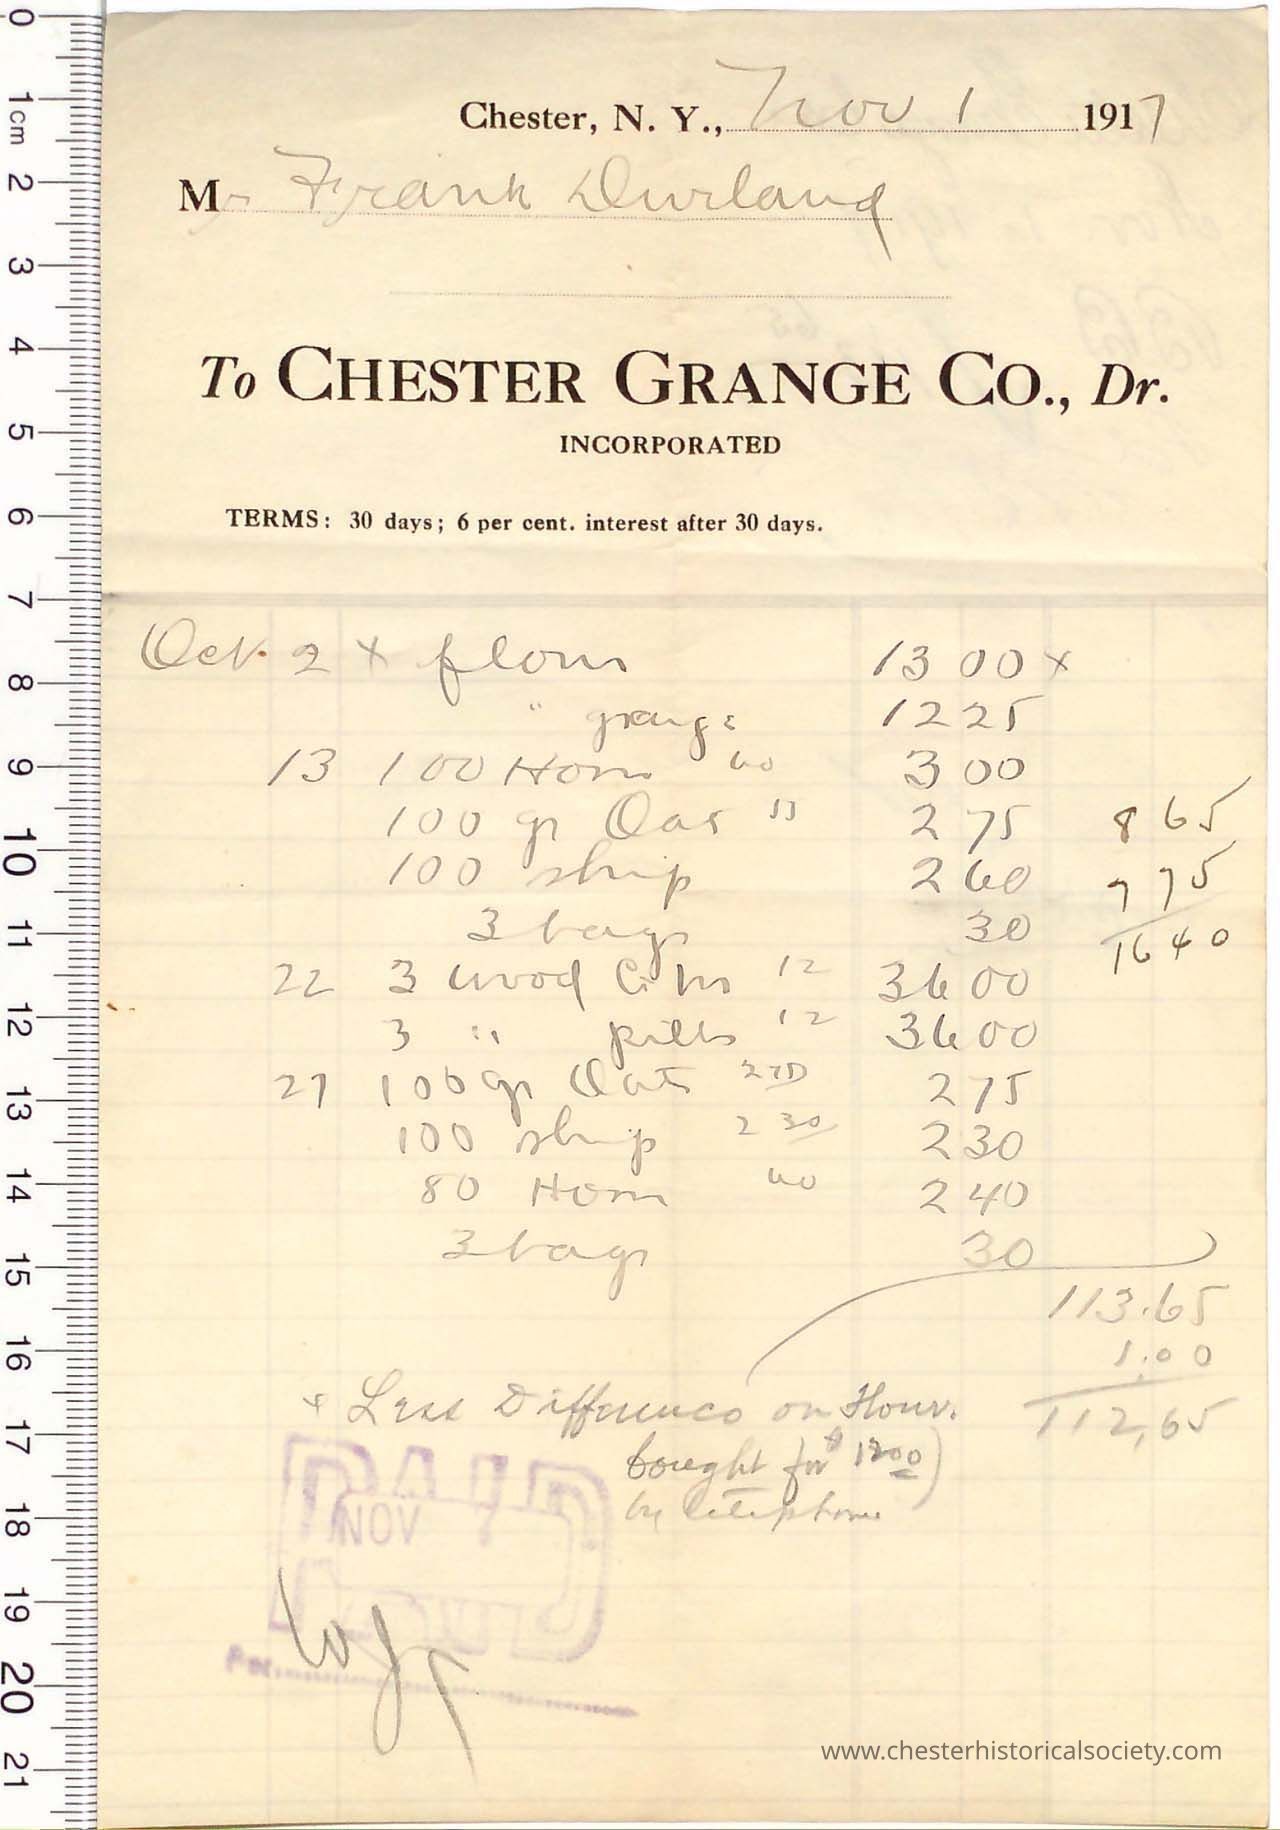 0 1cm 2 3 4 5 6 7 8 9 10 11 12 13 14 15 16 17 18 19 20 21
Chester, N. Y., Nov 1 1917
Mr Frank Durland
To CHESTER GRANGE CO., Dr.
INCORPORATED
TERMS: 30 days; 6 per cent. interest after 30 days.
Oct. 2 x flour 13 00 x
" grange 12 25
13 100 Hom 60 3 00
100 gr Oat " 2 75 8 65
100 ship 2 60 7 75
3 bags 30 16 40
22 3 wood 12 36 00
3 " pills 12 36 00
27 100 gr Oats 275 2 75
100 ship 2 30 2 30
80 Hom 60 2 40
3 bags 30
113.65
1.00
x Less Difference on Flour. 112,65
bought for $1200)
by telephone
PAID
NOV
Per
www.chesterhistoricalsociety.com